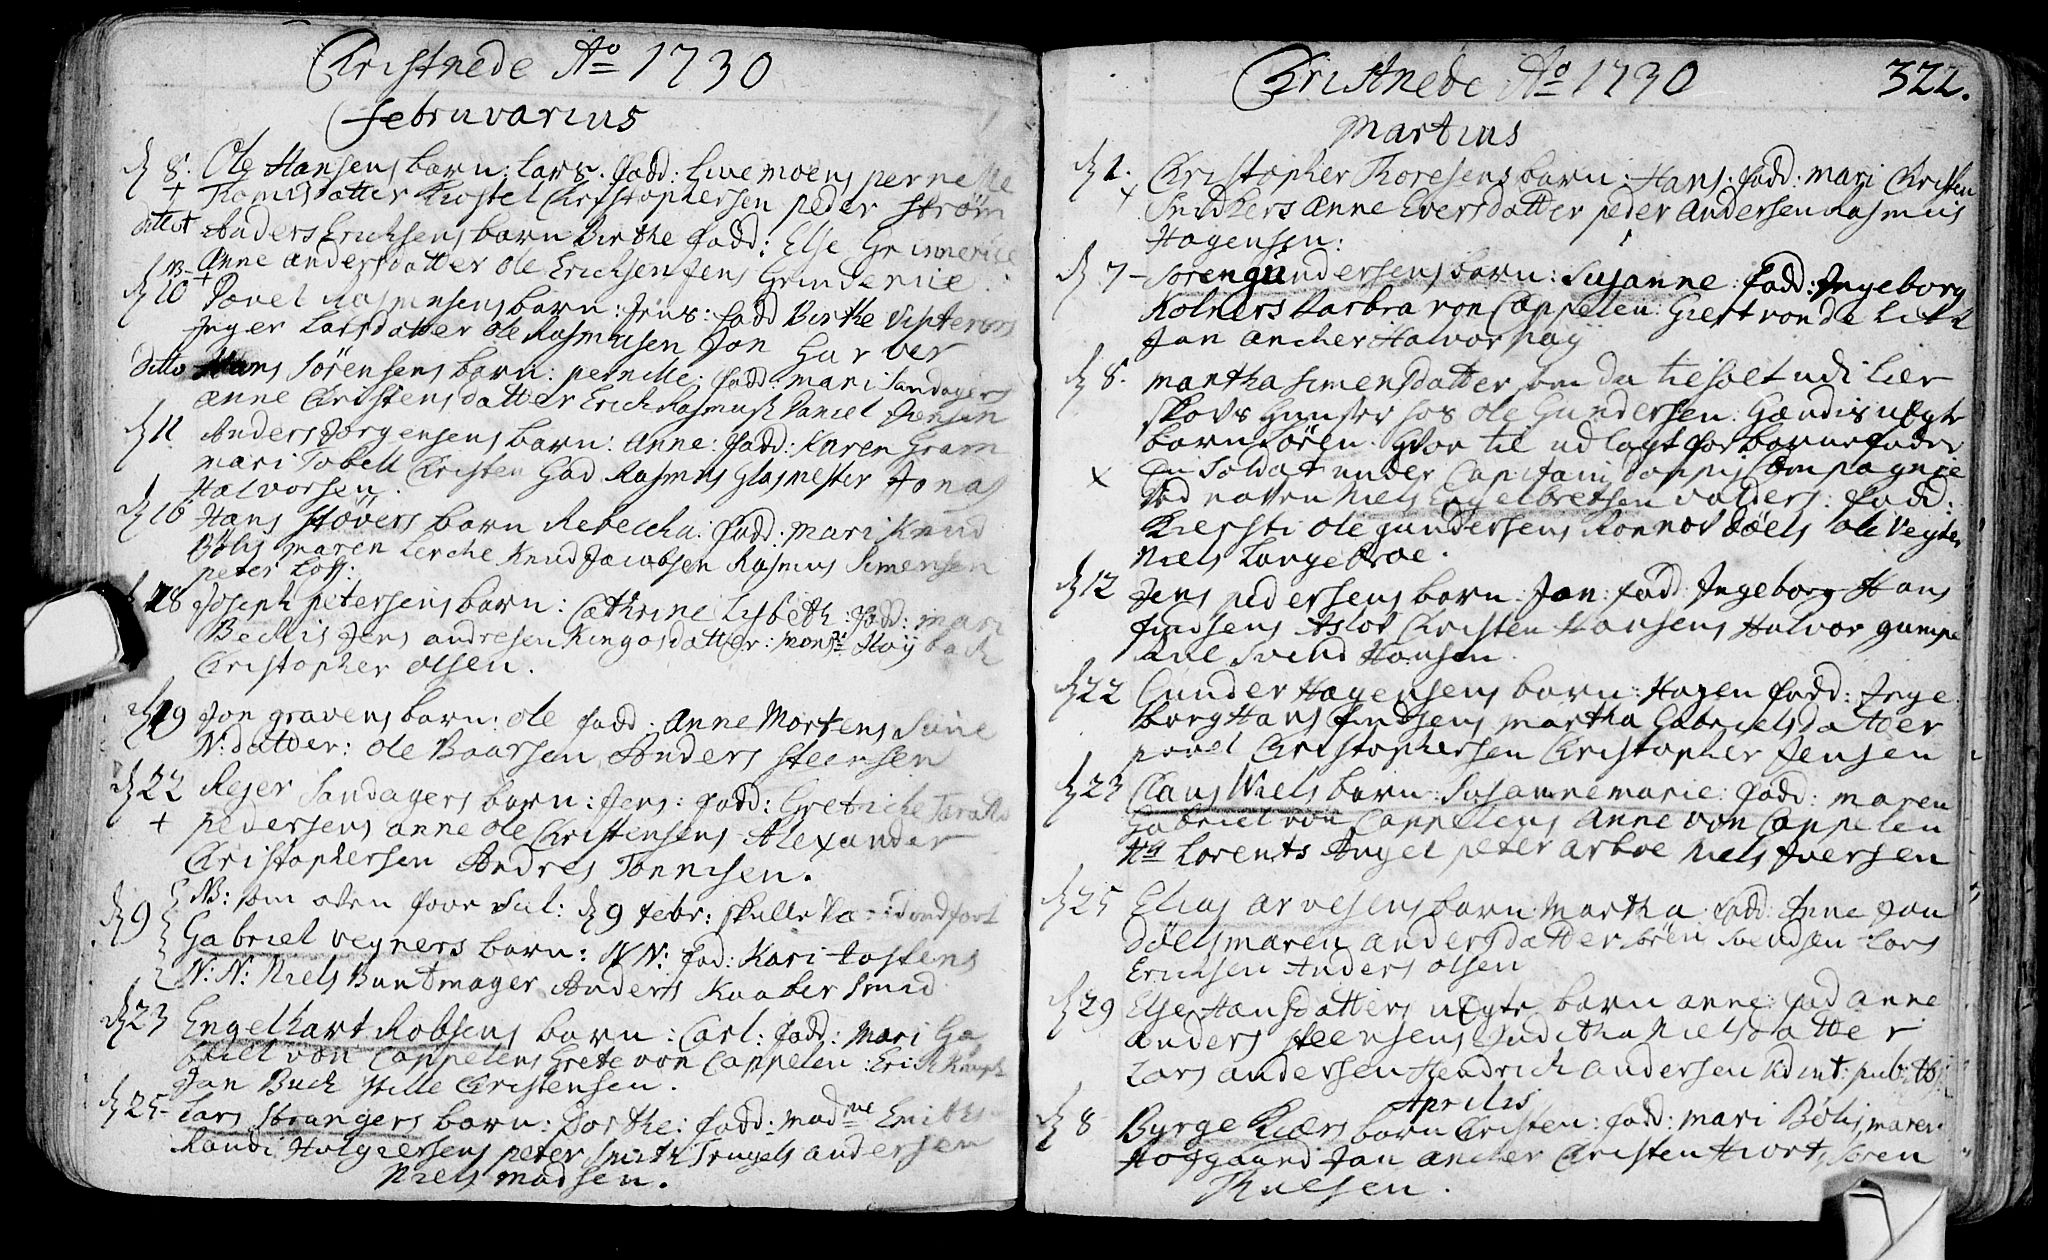 Christnede Ao 1730
februvarius
d 8. Ole Hansens barn: Lars. fadd: Live Moens pernelle
+ Thomisdatter Kiostel Christophersen peder Strøm
ditto Anders Ericksens barn Birthe fadd: Else
Anne andersdatter Ole Ericksen Jens
d 10 Povel Rasmusens barn: Jens: fadd Birthe
Inger Larsdatter Ole Rasmusen Jon Garver
ditto Hans Sørensens barn: pernille: fadd: mari Sandagers
Anne Christensdatter Erick Rasmus Daniel Jensen
d 11 Anders Jorgensens barn: Anne: fadd: Karen Gram
mari Tobell Christen Gad Rasmus Glasmester Jonas
Halvorsen.
d 16 Hans Støvers barn Rebeccha: fadd: mari Knud
Bølis maren Lerche Knud Jacobsen Rasmus Simensen
peter Loss:
d 18 Joseph petersens barn: Cathrine Lisbeth: fadd: mari
Beckis Jens andresen Kingosdatter: Monsr Høybach
Christopher olsen.
d 19 Jon gravens barn: ole fadd: Anne Mortens
N: datter: ole Baarsen Anders Steensen
d 22 Rejer Sandagers barn: Jens: fadd: Gretiche
+ pedersens anne ole Christensens Alexander
Christophersen Andres Tønnesen.
NB: som oven fore d 9 febr: skulle
d 9 Gabriel vegners barn: NN: fad: Kari tostens
N: N: Niels Buntmager Anders Knaber Smid
d 23 Engelhart Robsens barn: Carl: fadd: Mari Ga
briel von Cappelens Grete von Cappelen: Erick
Jan Buch Hille Christensen.
d 25 Lars Strangers barn: Dorthe: fadd: madme Smiths
Randi Holgiersens peter Smith Trugels andersen
Niels Madsen.
Christnede Ao 1730 322.
Martius
d 1. Christopher Thoresens barn: Hans. fadd: mari Christen
x Snidkers Anne Eversdatter peder Andersen Rasmus
Hagensen:
d 7 Søren gundersens barn: Susanne: fadd: Ingeborg
Kolners Barbra von Cappelen: Giert von de
Jan Ancher Halvor pay
d 8. martha Simensdatter som da tilholt udi Lier
skovs hos Ole Gundersen: Hendis uegte
barn Søren. Hvor til udlagt for barnefader
x En Soldat under Capitain Compagnie
ved navn Niels Engelbretsen valders: fadd:
Kiersti ole gundersens Ronnov Døels ole Vegter
Niels Langebroe.
d 12 Jens pedersens barn. Jon: fadd: Ingeborg Hans
Findsens Aslov Christen Hansens Halvor
Svend Hansen.
d 22 Gunder Hagensens barn: Hagen fadd: Inge
borg Hans Findsens martha Gabrielsdatter
povel Christophersen Christopher Jensen
d 23 Claus Niels barn: Susanne marie: fadd: maren
Gabriel von Cappelens Anne von Cappelen
Hr Lorents Angel peter Arboe Niels Iversen
d 25 Elias arvesens barn: Martha. fadd: Anne Jon
Døels maren andersdatter Søren Svendsen Lars
Ericksen Anders olsen
d 29 Else Hansdatters uegte barn anne: fad anne
anders steensens Juditha Nielsdatter
Lars andersen Hendrich andersen
Aprilis
d 8 Byrge Kiærs barn Christen: fadd: mari Bølis, maren
Hofgaard Jan ancher Christen Hiort, Søren